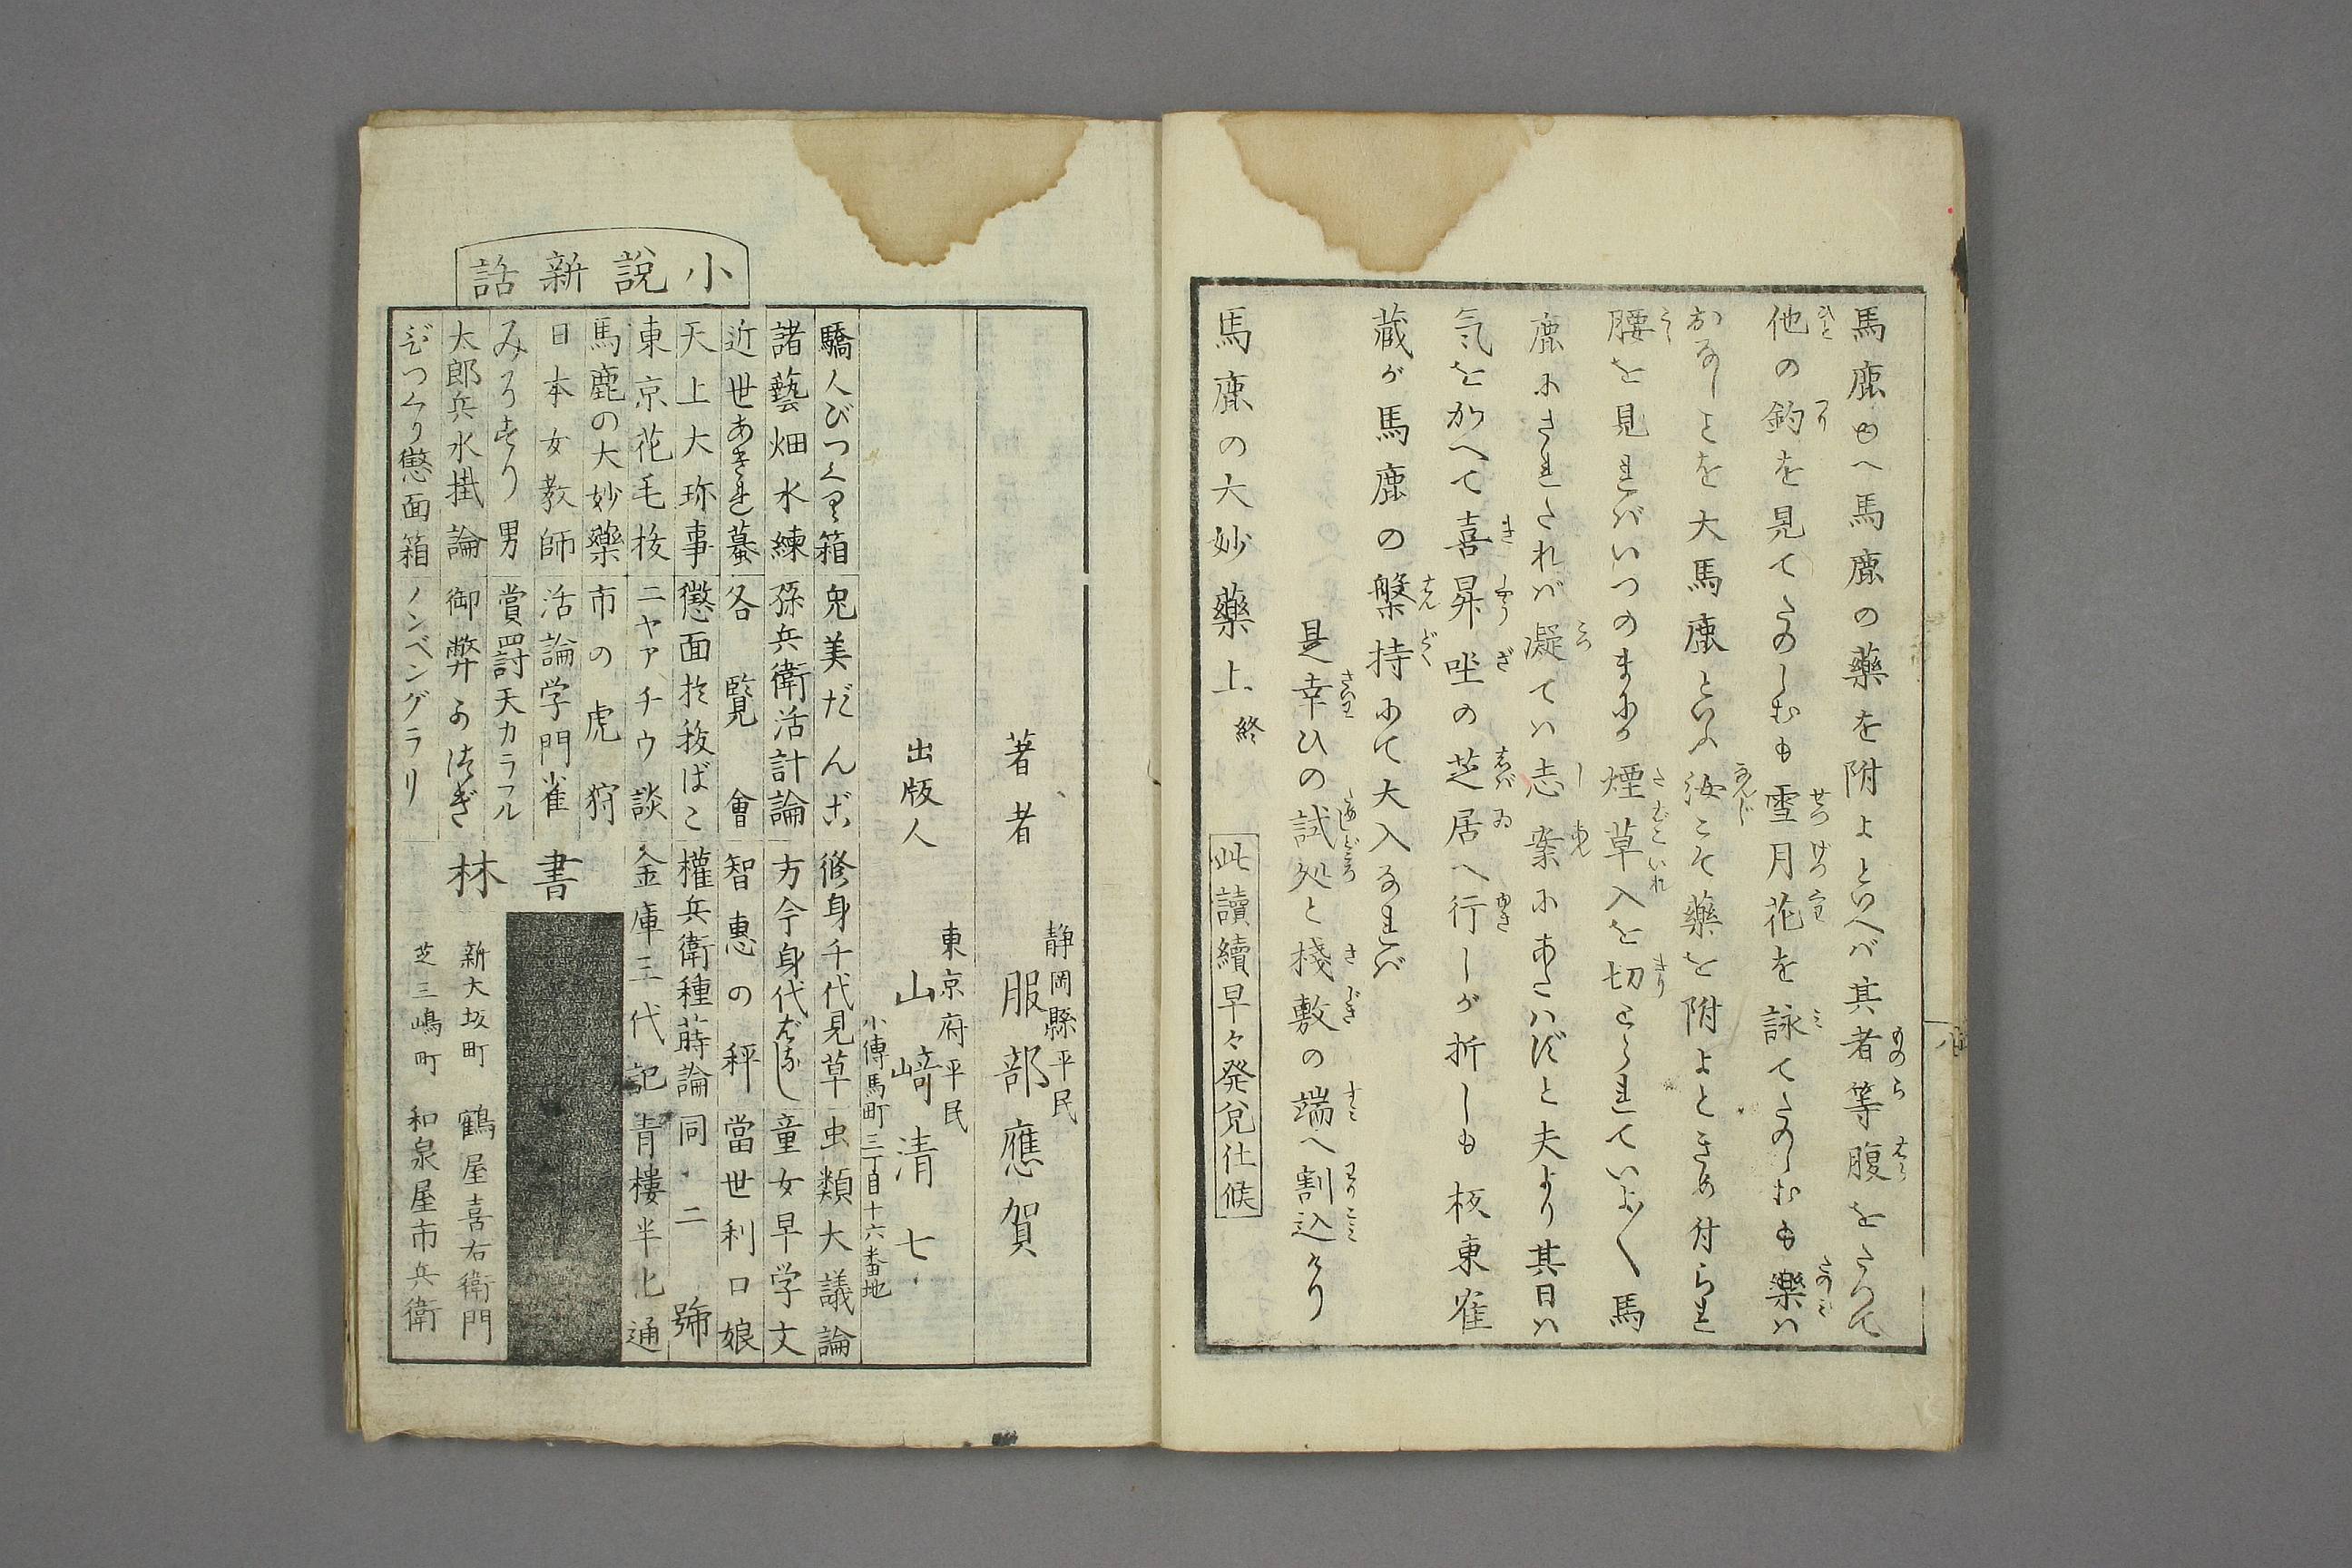 馬鹿めへ馬鹿の藥を附よといへバ其者等腹をたつて
他の釣を見てたのしむも雪月花を詠てたのしむも樂ハ
おなしことを大馬鹿といふ汝こそ藥を附よときめ付られ
腰を見れバいつのまにか煙草入を切とられていよ〳〵馬
鹿にされたれバ凝てハ志案にあたハずと夫より其日ハ
気をかへて喜昇坐の芝居へ行しが折しも坂東雀
蔵が馬鹿の槃持にて大入なれバ
是幸ひの試処と棧敷の端へ割込けり
馬鹿の大妙藥上終
此讀續早々発兌仕候
著者 静岡縣平民 服部應賀
出版人 東京府平民 山﨑清七
小傳馬町三丁目十六番地
小說新話
驕人びつくり箱 兎美だんご 修身千代見草 虫類大議論
諸藝畑水練 孫兵衛活計論 方今身代ばなし 童女早学文
近世あきれ蟇 各覽會 智惠の秤 當世利口娘
天上大珎事 懲面於抜ばこ 權兵衛種蒔論 同二號
東京花毛抜 ニヤアチウ談 金庫三代記 青樓半化通
馬鹿の大妙藥 市の虎狩
日本女教師 活論学門雀
みらすり男 賞罸天カラフル
太郎兵水掛論 御弊のはぎ
びつくり懲面箱 ノンベングラリ
書林
新大坂町 鶴屋喜右衛門
芝三嶋町 和泉屋市兵衛